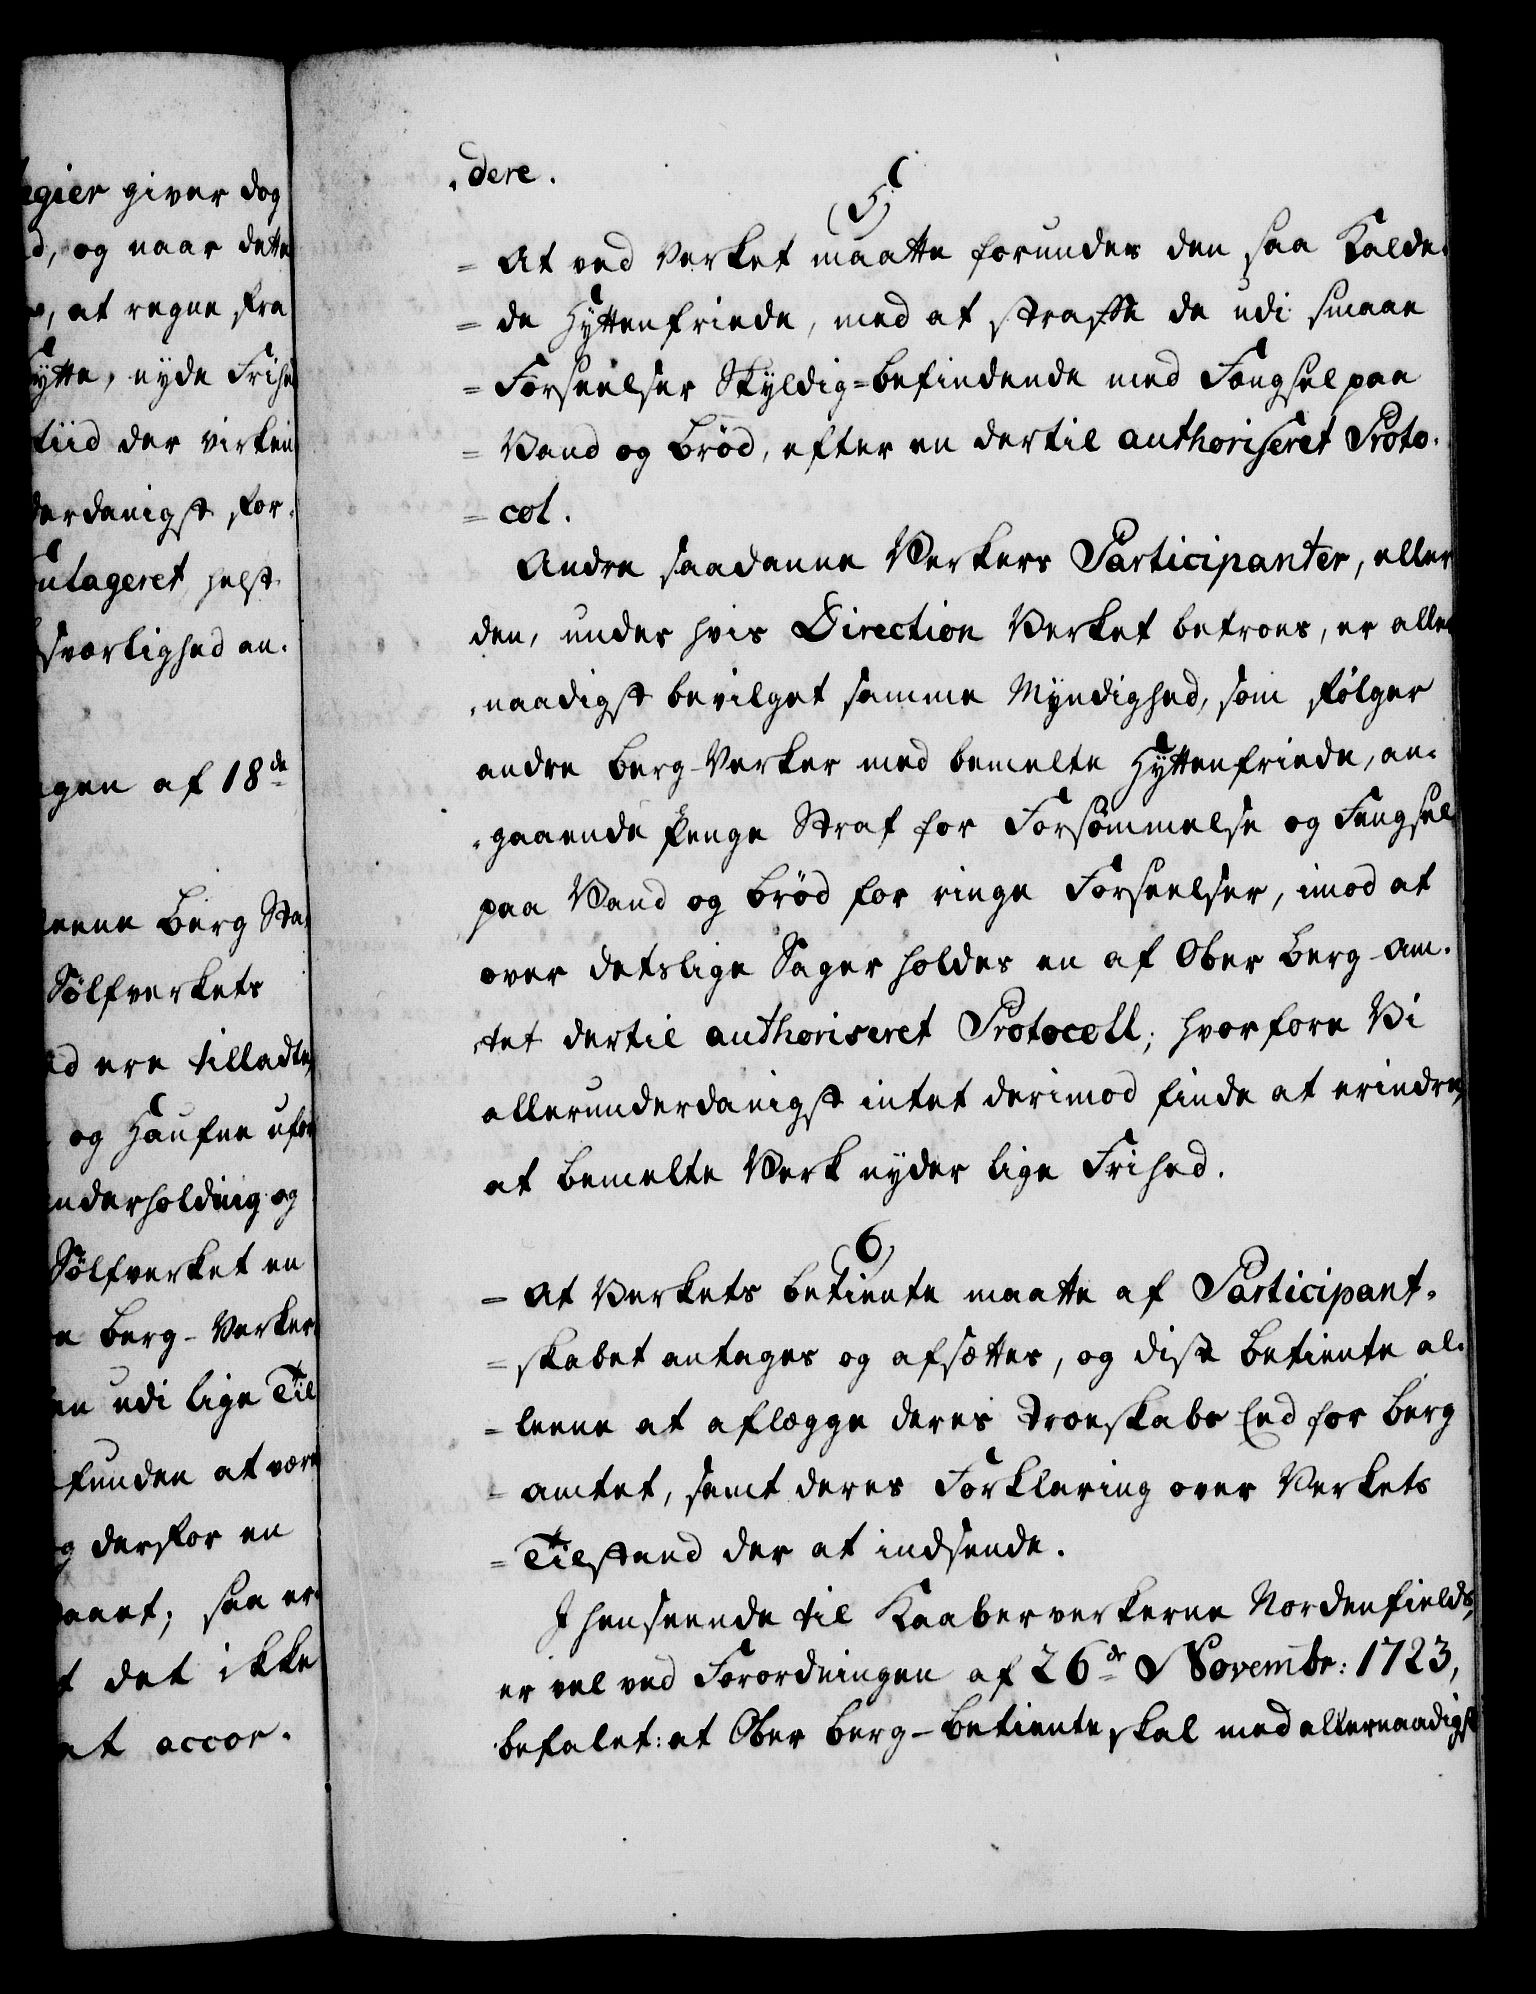 egier giver dog
d, og naar dette
, at regne fra
Hytte, nyde Frihe
tiid der virkein
derdanigst for-
utageret helst
sværlighed an-
gen af 18de
eene Berg Sta
Sølfverkets
d ere tilladte,
og Haufne ufor
nderholding og
Sølfverket en
e Berg-Verker
en udi lige Til
funden at være
g derfor en
aant; saa er
t det ikke
at accor-
-dere.
5
= At ved Verket maatte forundes den saa Kalde-
= de Hyttenfriede, med at straffe de udi smaae
= Forseelser Skyldig-befindende med Fængsel paa
= Vand og Brød, efter en dertil authoriseret Proto-
= col.
Andre saadanne Verkers Participanter, eller
den, under hvis Direction Verket betroes, er aller
-naadigst bevilget samme Myndighed, som følger
andre Berg-Verker med bemelte Hyttenfriede, an-
-gaaende Penge Straf for Forsømmelse og Fengsel
paa Vand og Brød for ringe Forseelser, imod at
over detslige Sager holdes en af Ober Berg-Am-
-tet dertil authoriseret Protocoll; hvorfore Vi
allerunderdanigst intet derimod finde at erindre,
at bemelte Verk nyder lige Frihed.
6
= At Verkets Betiente maatte af Participant-
= skabet antages og afsættes, og disse Betiente al-
= leene at aflægge deres Troeskabs Eed for Berg
= amtet, samt deres Forklaring over Verkets
= Tilstand der at indsende.
I henseende til Kaaberverkerne Nordenfields,
er vel ved Forordningen af 26de Novembr: 1723,
befalet: at Ober Berg-Betiente skal med allernaadigst